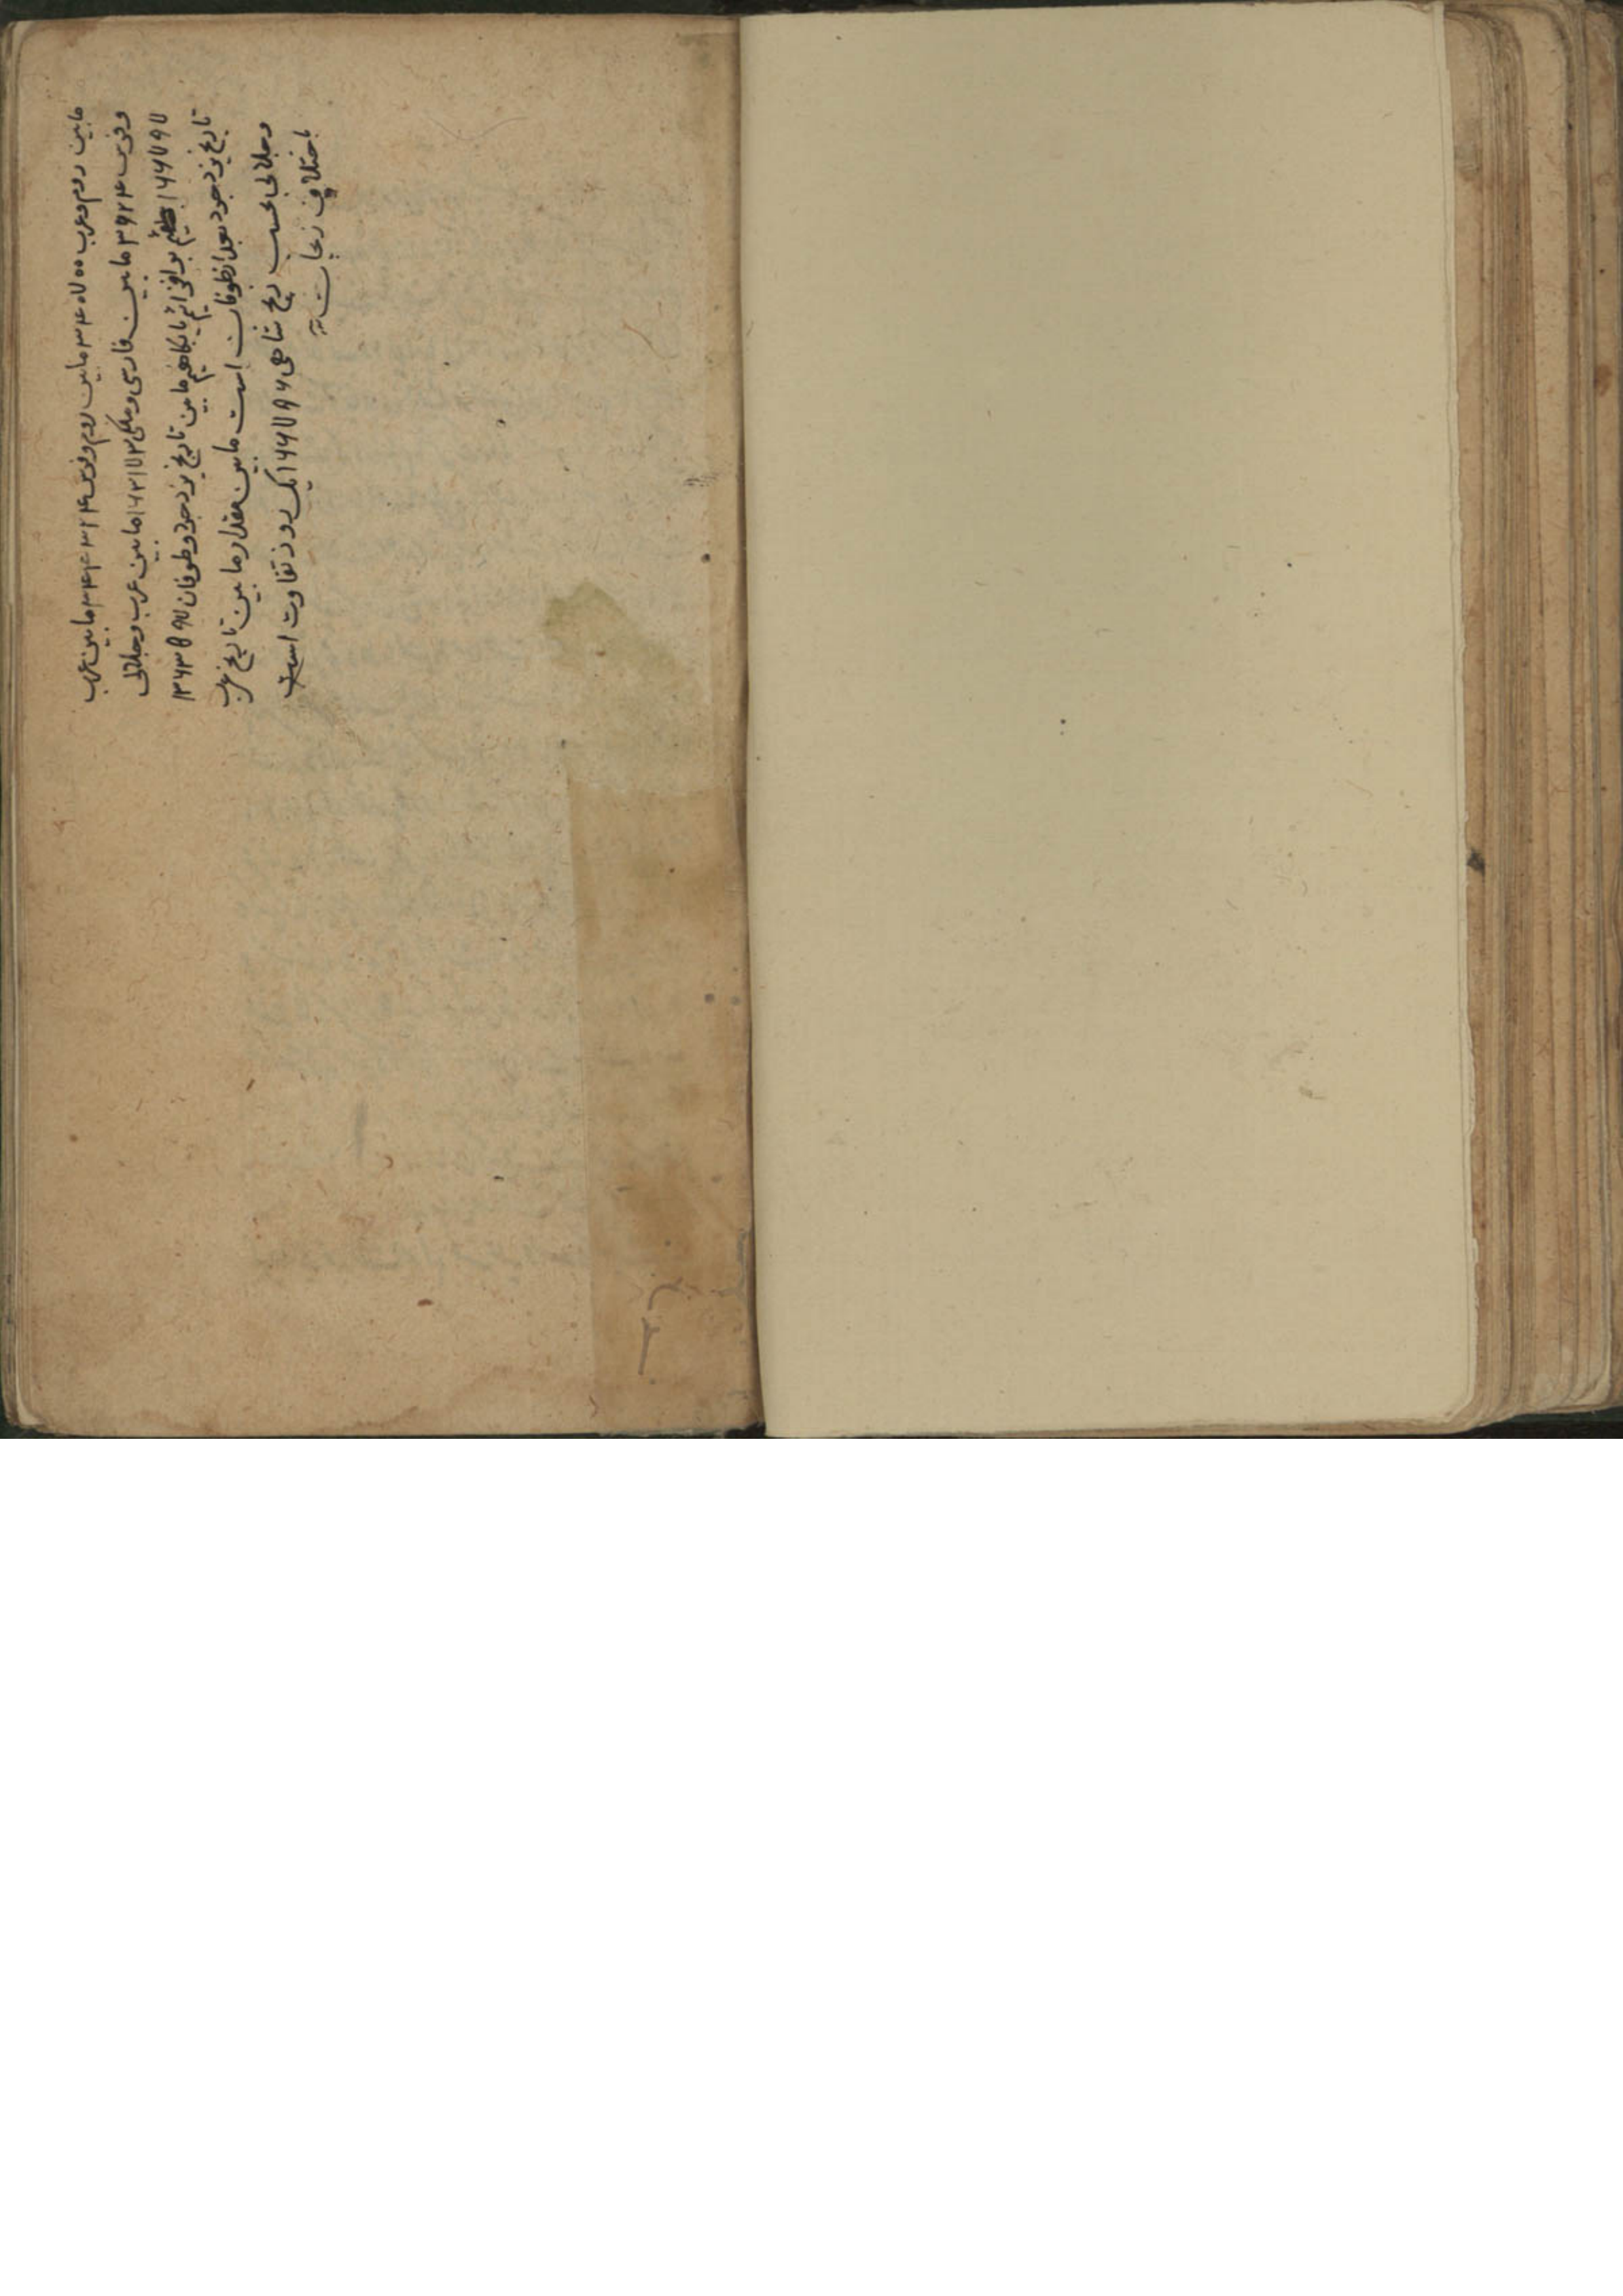 مابین روم و عرب ۳۴۰۷۰۰ مابین روم و فرس ۳۴۴۳۲۴ مابین عرب
و فرس ۳۶۲۴ مابین فارسی و ملکی ۱۶۳۱۷۳ مابین عرب و جلالی
۱۶۶۷۹۷ بر افزائیم یا بکاهیم مابین تاریخ یزدجرد و طوفان ۱۳۶۳۵۹۷
تاریخ یزدجرد بعد از طوفان است مابین مقدار مابین تاریخ عرب
و جلالی بحسب زیج شاهی ۱۶۶۷۹۶ یک روز تفاوت است
باختلاف زیجات